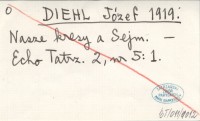 0
DIEHL Józef 1919:
Nasze kresy a Sejm. –
Echo Tatrz. 2, nr 5: 1.